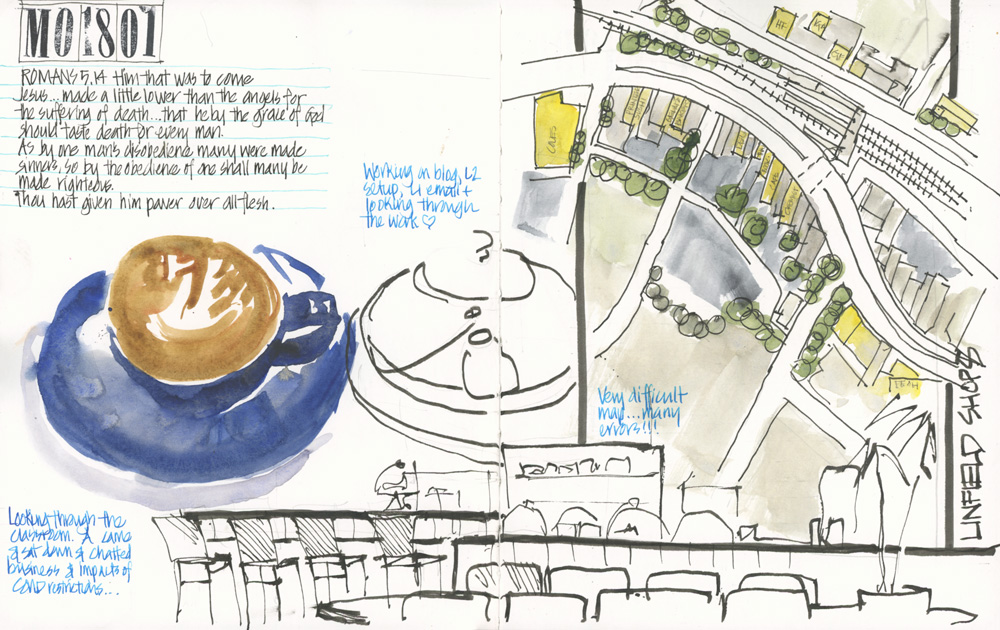 MO1801
ROMANS 5.14 Him that was to come
Jesus... made a little lower than the angels for
the suffering of death... that he by the grace of God
should taste death for every man.
As by one man's disobedience many were made
sinners, so by the obedience of one shall many be
made righteous.
Thou hast given him power over all flesh.
Working on blog, L2
setup, L1 email +
looking through
the work ♡
Very difficult
map... many
errors!!!
Looking through the
classroom. A came
& sat down & chatted
business & impacts of
COVID restrictions...
LINFIELD SHOPS
CAFES
HF
LEAH